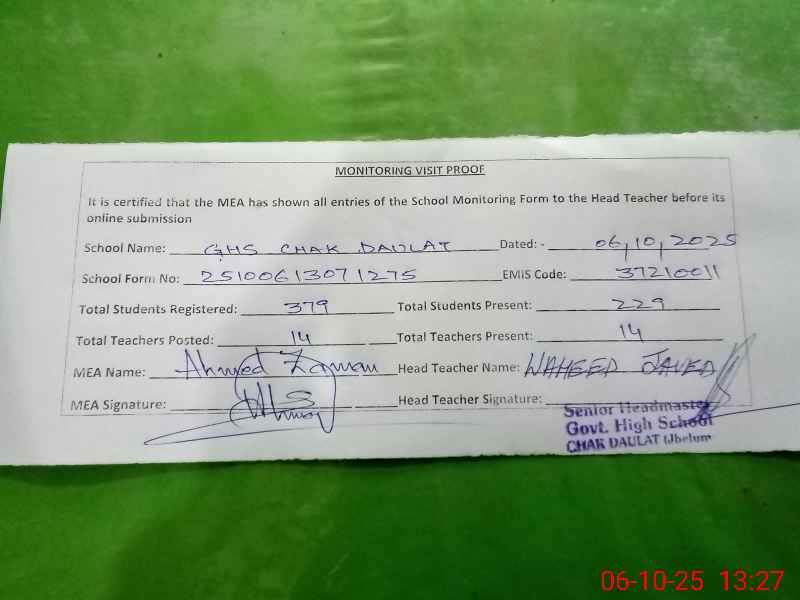 MONITORING VISIT PROOF
It is certified that the MEA has shown all entries of the School Monitoring Form to the Head Teacher before its
online submission
School Name: GHS CHAK DAULAT Dated: - 06,10,2025
School Form No: 25100613071275 EMIS Code: 37210011
Total Students Registered: 379 Total Students Present: 229
Total Teachers Posted: 14 Total Teachers Present: 14
MEA Name: Ahmed Zaman Head Teacher Name: WAHEED JAVED
MEA Signature: Head Teacher Signature:
Senior Headmaster
Govt. High School
CHAK DAULAT (Jhelum
06-10-25 13:27